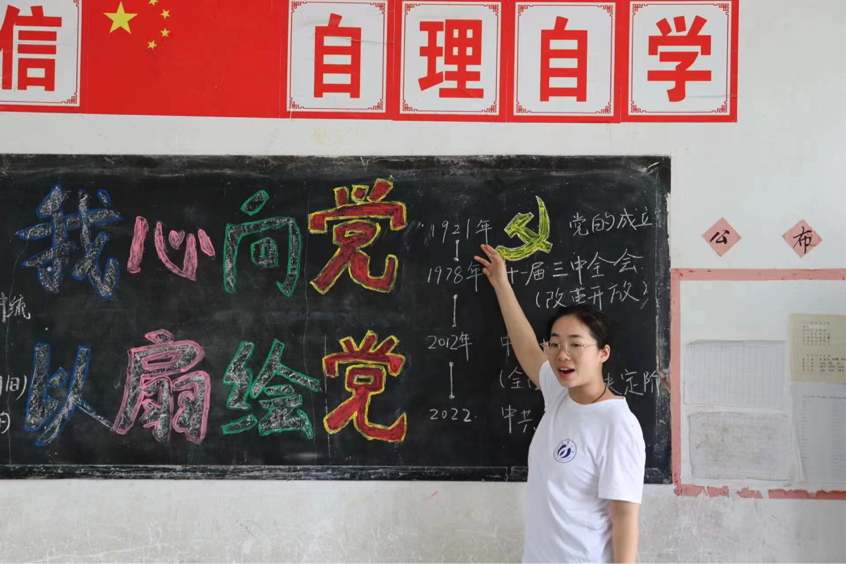 信 自理 自学
我心向党
以扇绘党
1921年 党的成立
1978年 十一届三中全会
(改革开放)
2012年 中
定阶
2022. 中共
流
公布